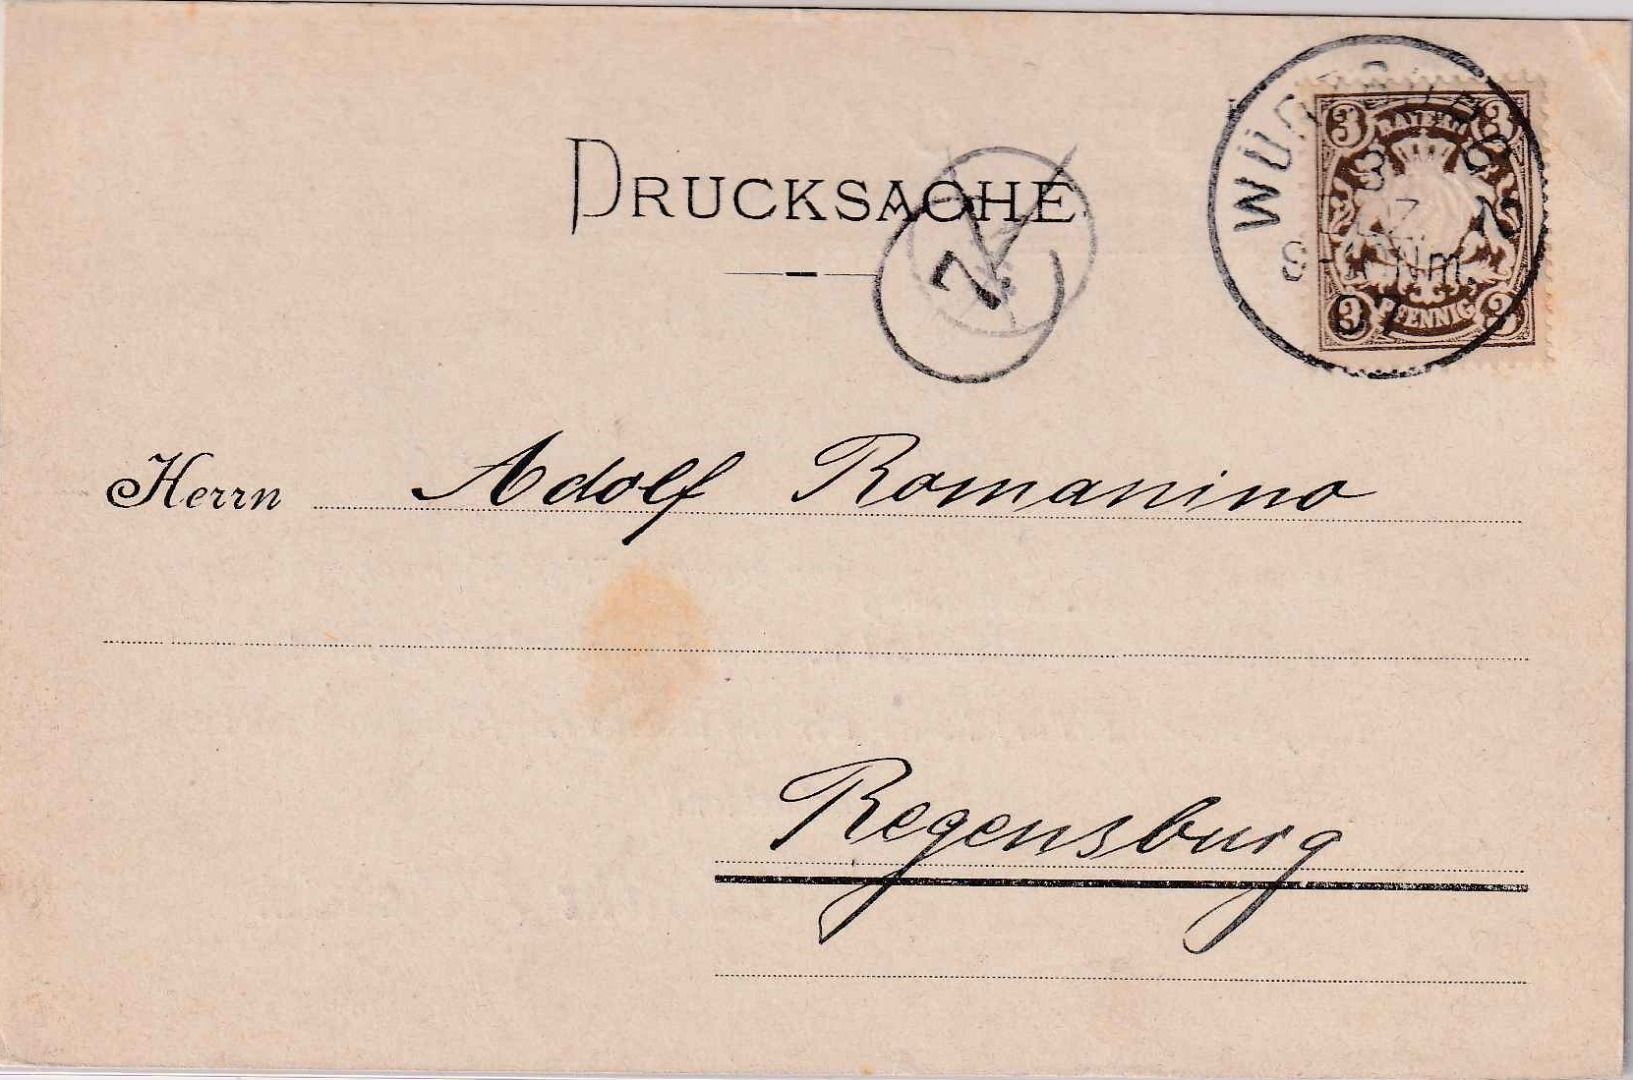 DRUCKSACHE
WÜRZBURG
3
3 BAYERN 3
3 PFENNIG 3
7
Herrn Adolf Romanino
Regensburg